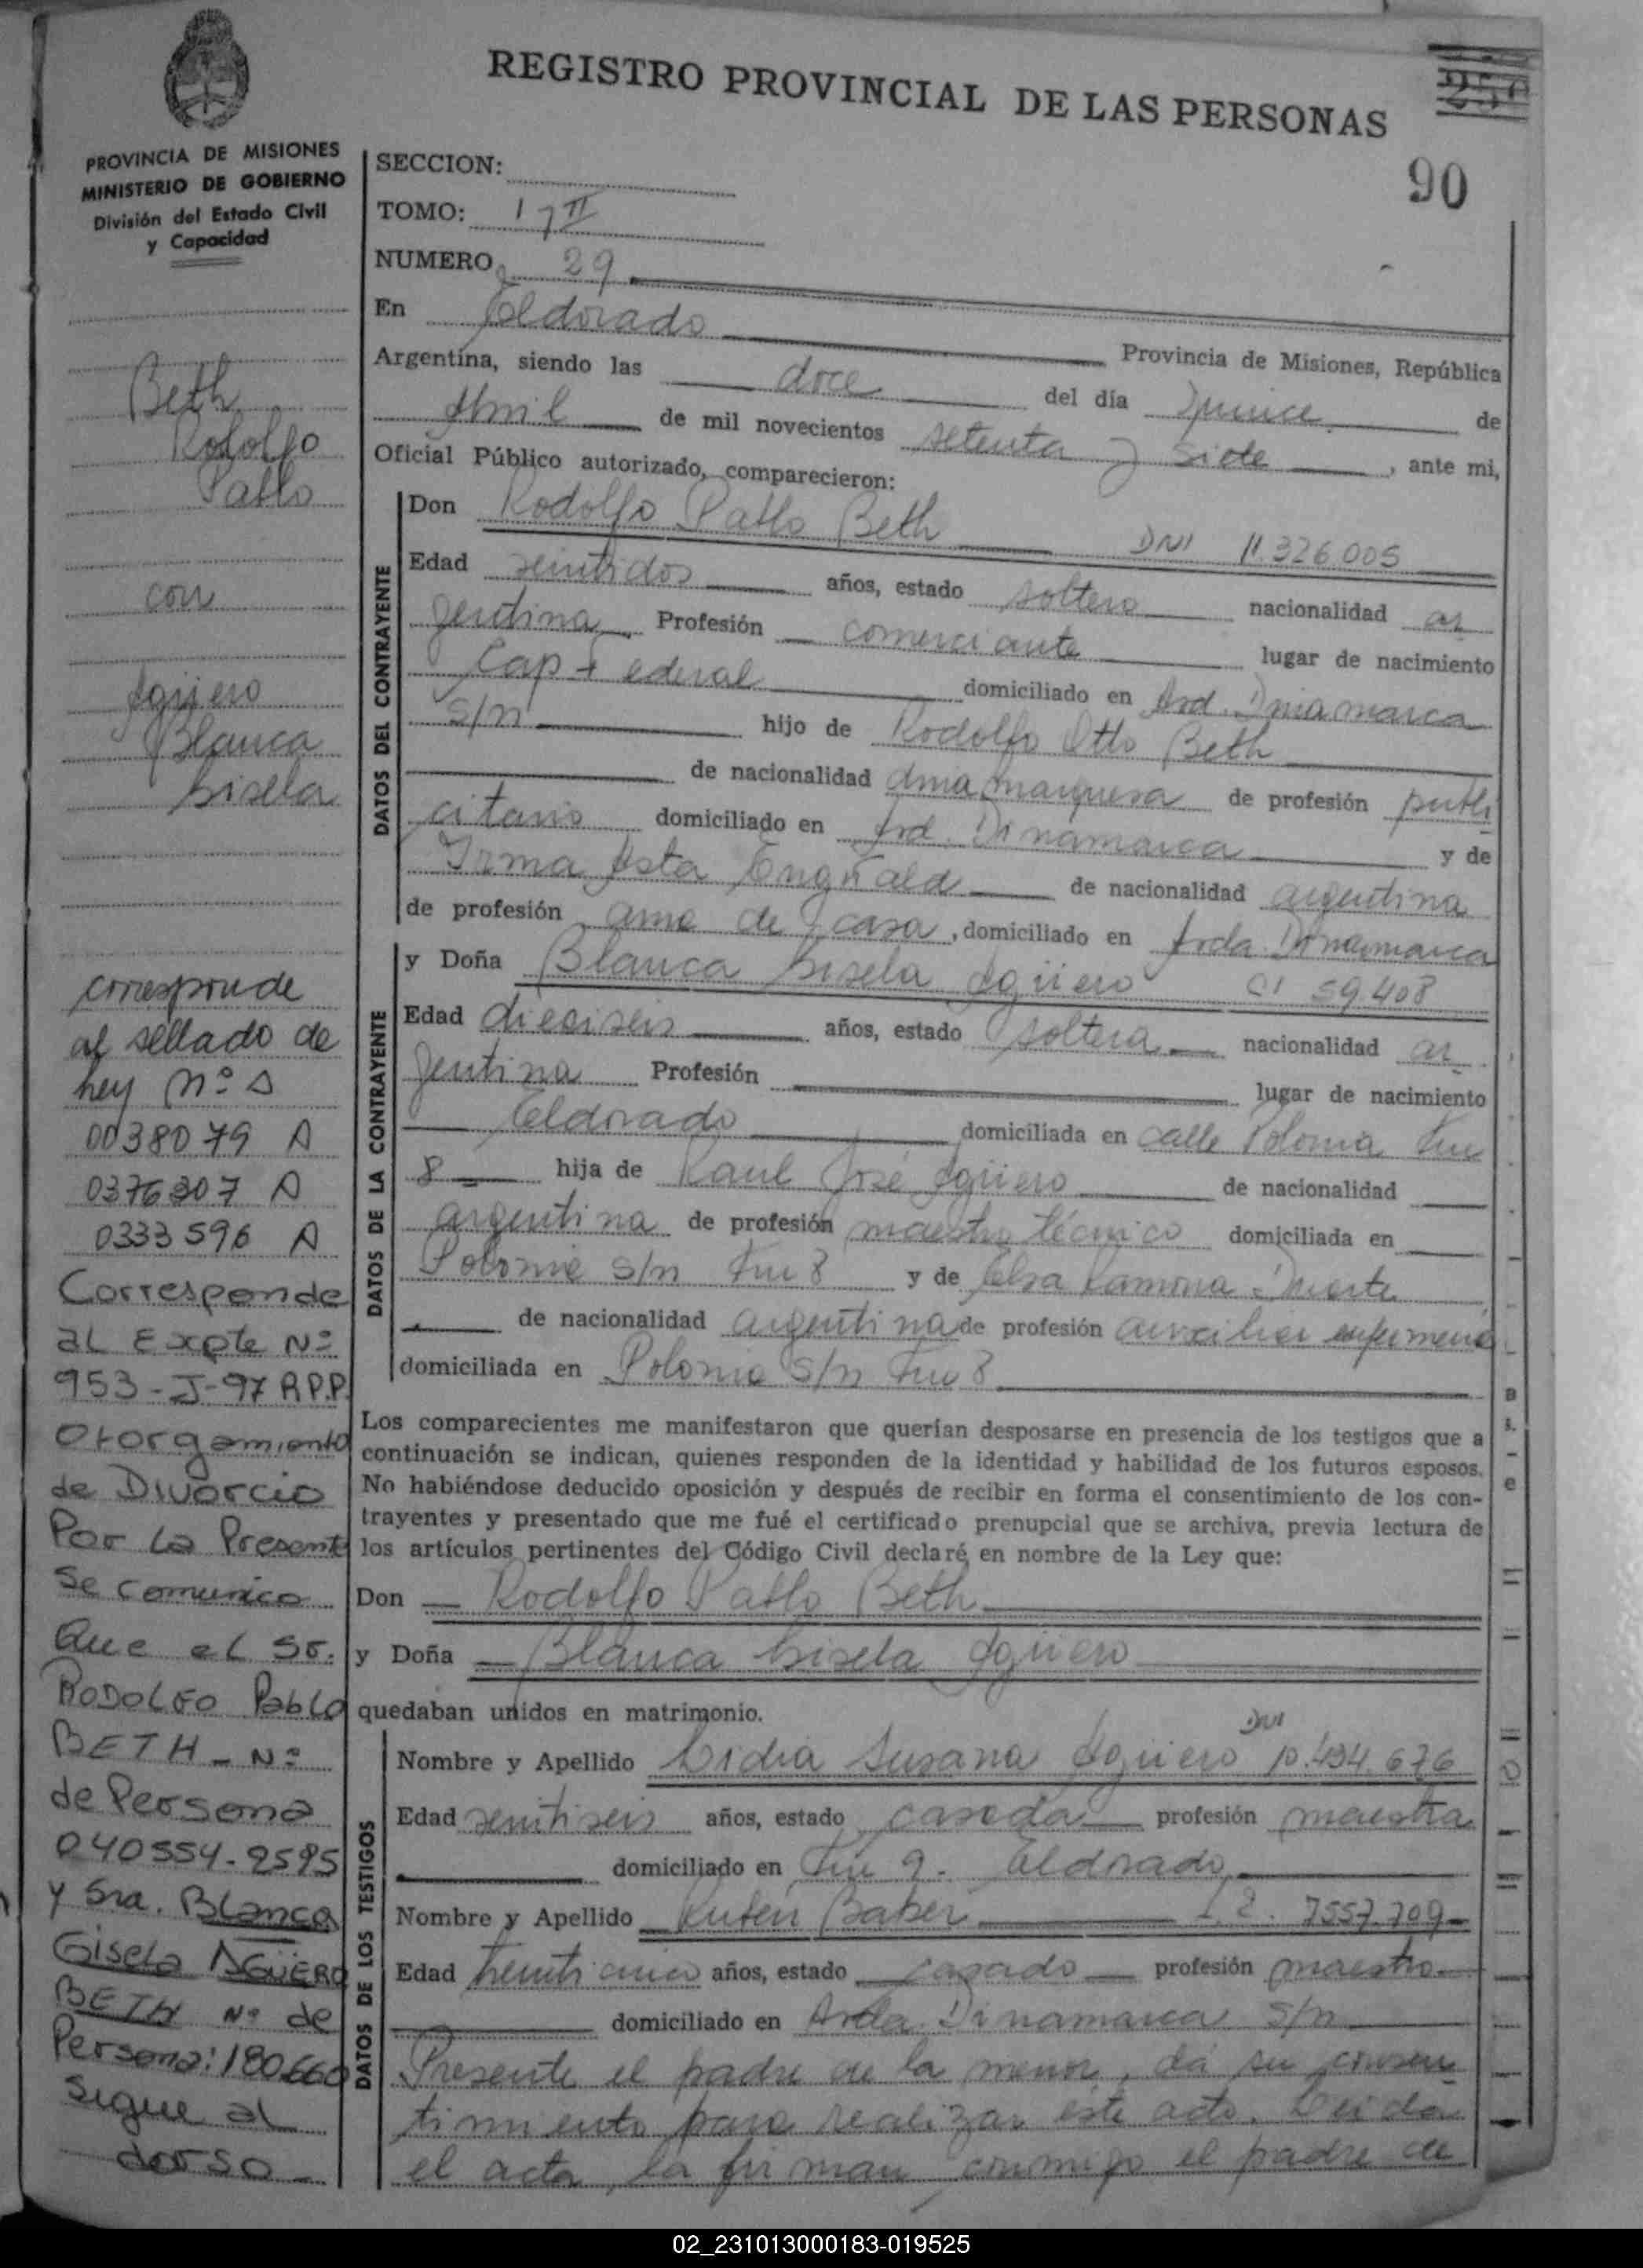 REGISTRO PROVINCIAL DE LAS PERSONAS
90
PROVINCIA DE MISIONES
MINISTERIO DE GOBIERNO
División del Estado Civil
y Capacidad
SECCION:
TOMO: 17 II
NUMERO 29
En Eldorado
Provincia de Misiones, República
Argentina, siendo las doce del día Quince de
Abril de mil novecientos setenta y siete, ante mi,
Oficial Público autorizado, comparecieron:
DATOS DEL CONTRAYENTE
Don Rodolfo Pablo Beth DNI 11.326.005
Edad veintidos años, estado soltero nacionalidad ar
gentina Profesión comerciante lugar de nacimiento
Cap Federal domiciliado en Avd. Dinamarca
s/n hijo de Rodolfo Otto Beth
de nacionalidad dinamarquesa de profesión publi
citario domiciliado en Avd. Dinamarca y de
Irma Asta de nacionalidad argentina
de profesión ama de casa, domiciliado en Avda. Dinamarca
DATOS DE LA CONTRAYENTE
y Doña Blanca Gisela Agüero CI 59.408
Edad dieciseis años, estado soltera nacionalidad ar
gentina Profesión lugar de nacimiento
Eldorado domiciliada en calle Polonia Km
8 hija de Raul José Agüero de nacionalidad
argentina de profesión maestro técnico domiciliada en
Polonia s/n Km 8 y de Elsa Ramona Duarte
de nacionalidad argentina de profesión auxiliar enfermera
domiciliada en Polonia s/n Km 8
Los comparecientes me manifestaron que querían desposarse en presencia de los testigos que a
continuación se indican, quienes responden de la identidad y habilidad de los futuros esposos.
No habiéndose deducido oposición y después de recibir en forma el consentimiento de los con-
trayentes y presentado que me fué el certificado prenupcial que se archiva, previa lectura de
los artículos pertinentes del Código Civil declaré en nombre de la Ley que:
Don Rodolfo Pablo Beth
y Doña Blanca Gisela Agüero
quedaban unidos en matrimonio.
DATOS DE LOS TESTIGOS
DNI
Nombre y Apellido Lidia Susana Agüero 10.494.676
Edad veintiseis años, estado casada profesión maestra
domiciliado en Km 9. Eldorado
Nombre y Apellido Rubén 7557.709
Edad treinticinco años, estado casado profesión maestro
domiciliado en Avda. Dinamarca s/n
Presente el padre de la menor, dá su consen
timiento para realizar este acto. Leida
el acta, la firman conmigo el padre de
Beth
Rodolfo
Pablo
con
Agüero
Blanca
Gisela
corresponde
al sellado de
ley Nº S
0038079 A
0376307 A
0333596 A
Corresponde
al Expte Nº
953-J-97 R.P.P.
Otorgamiento
de Divorcio
Por La Presente
Se comunica
Que el Sr.
RODOLFO Pablo
BETH - Nº
de Persona
040554-2595
y Sra. Blanca
Gisela AGÜERO
BETH Nº de
Persona: 180.660
Sigue al
dorso
02_231013000183-019525